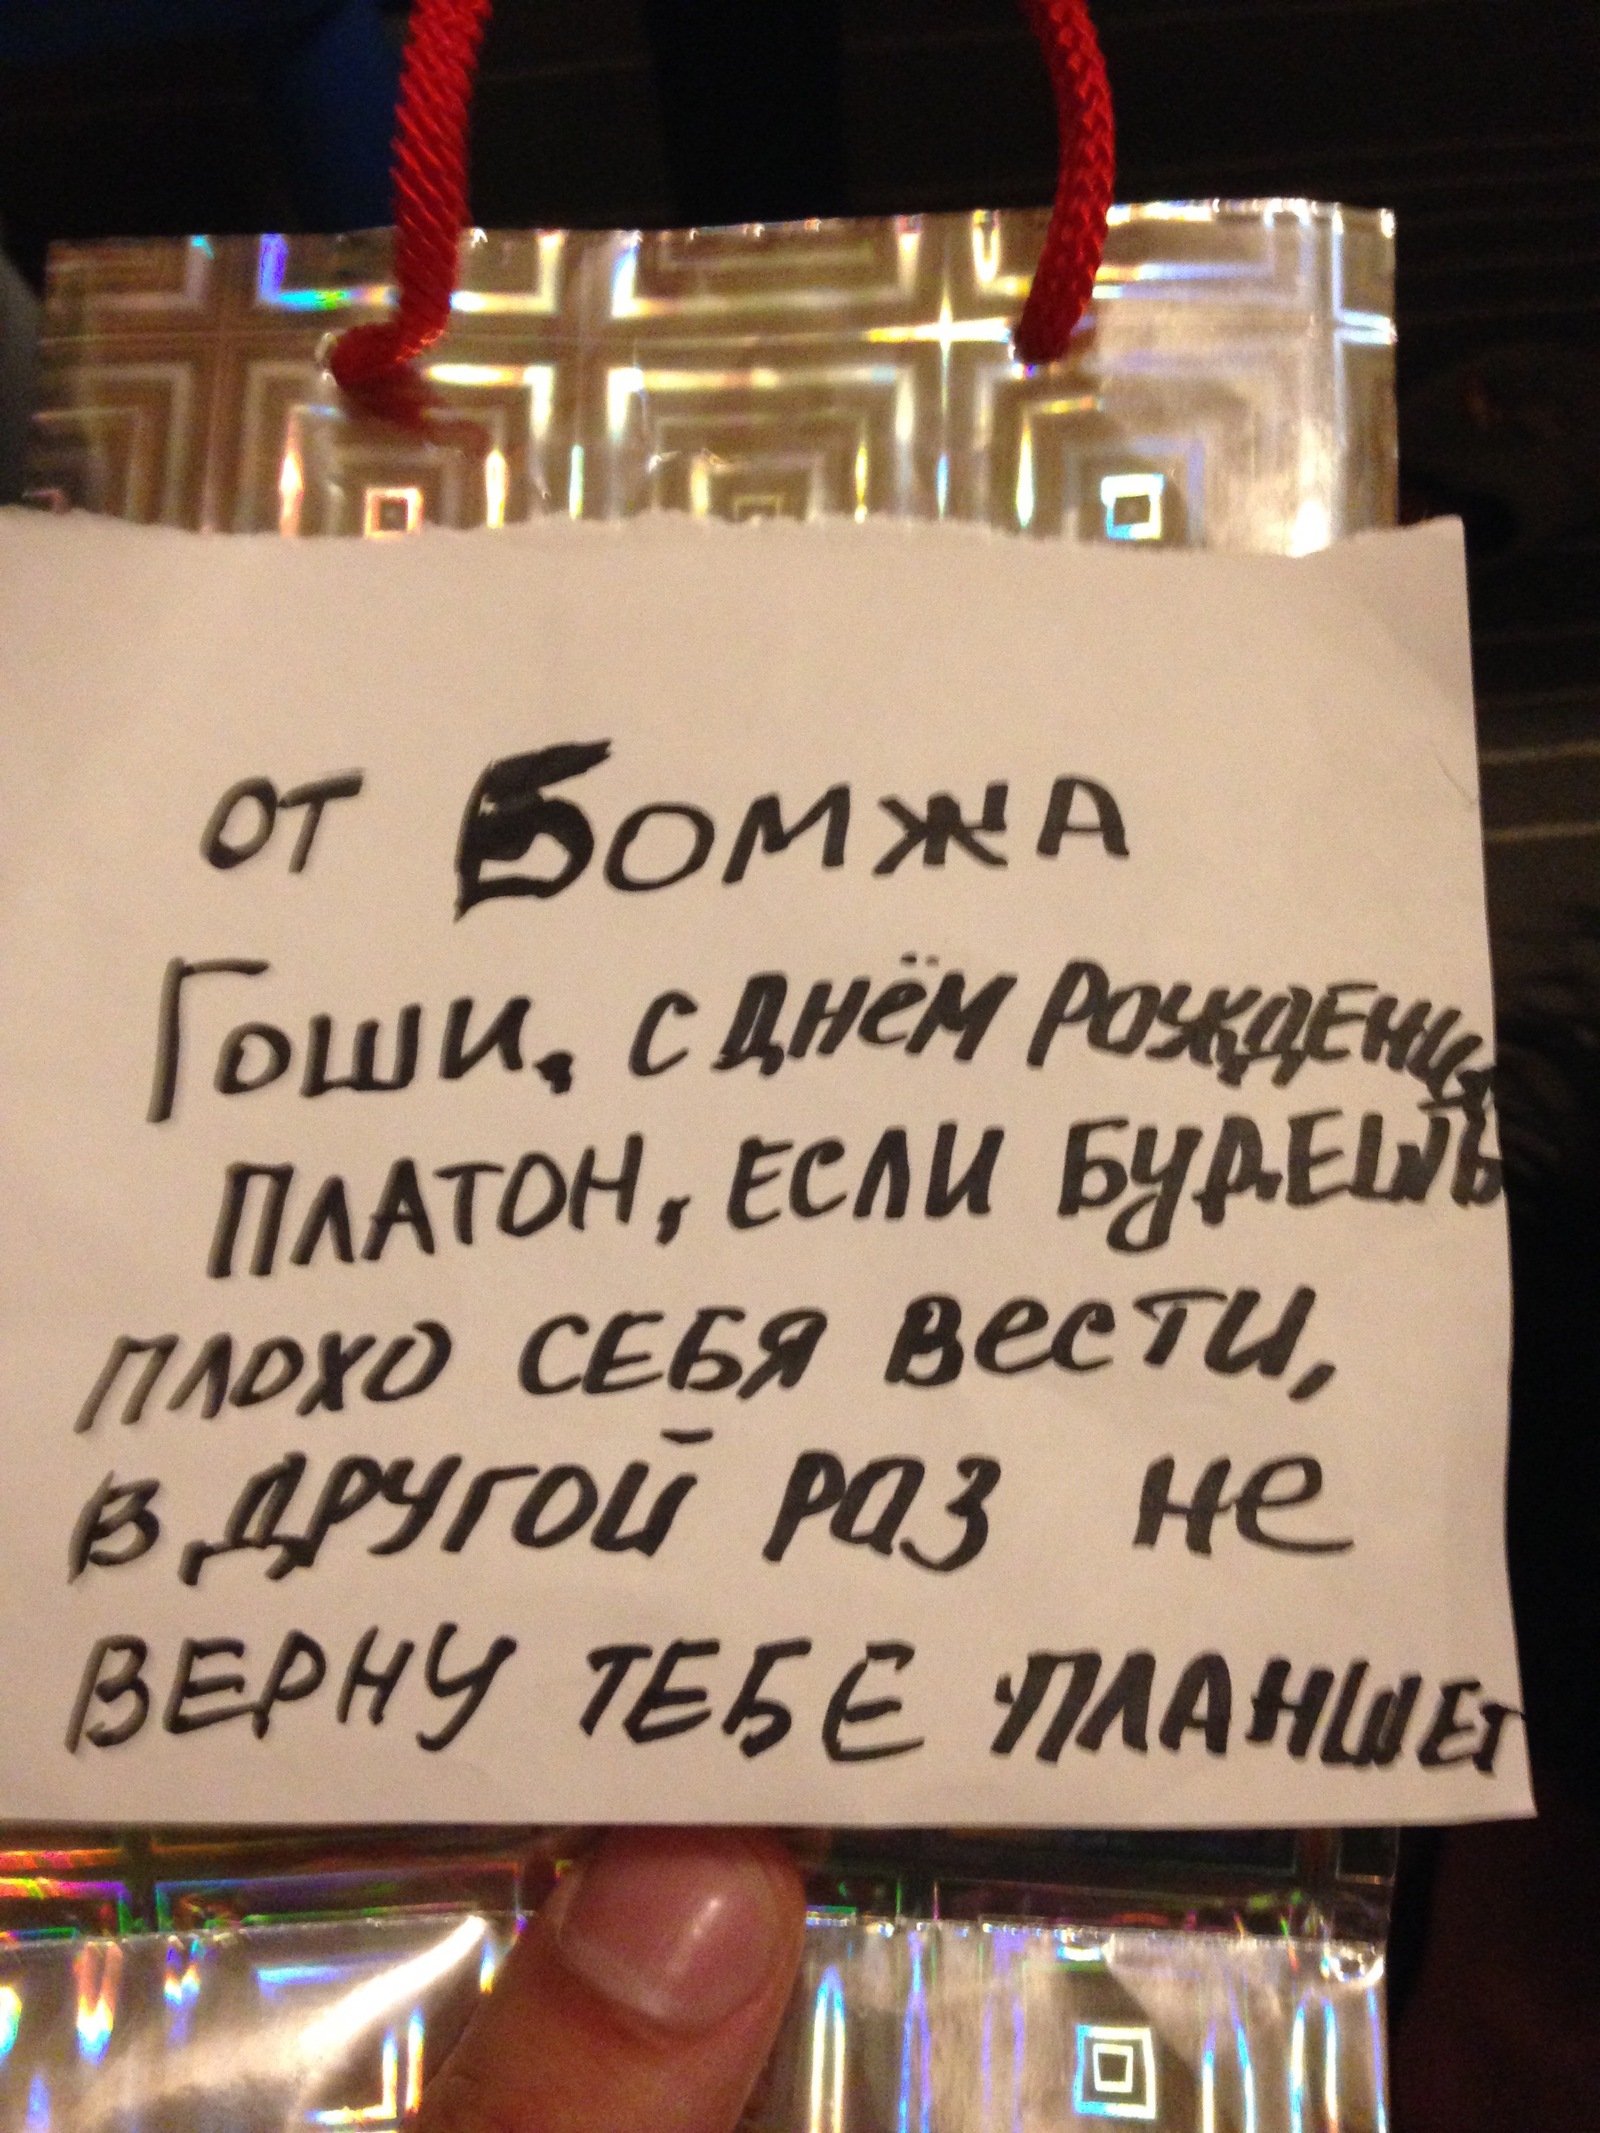 от Бомжа
Гоши, с днём РОЖДЕНИЯ
ПЛАТОН, ЕСЛИ БУДЕШЬ
ПЛОХО СЕБЯ ВЕСТИ,
В ДРУГОЙ РАЗ НЕ
ВЕРНУ ТЕБЕ ПЛАНШЕТ